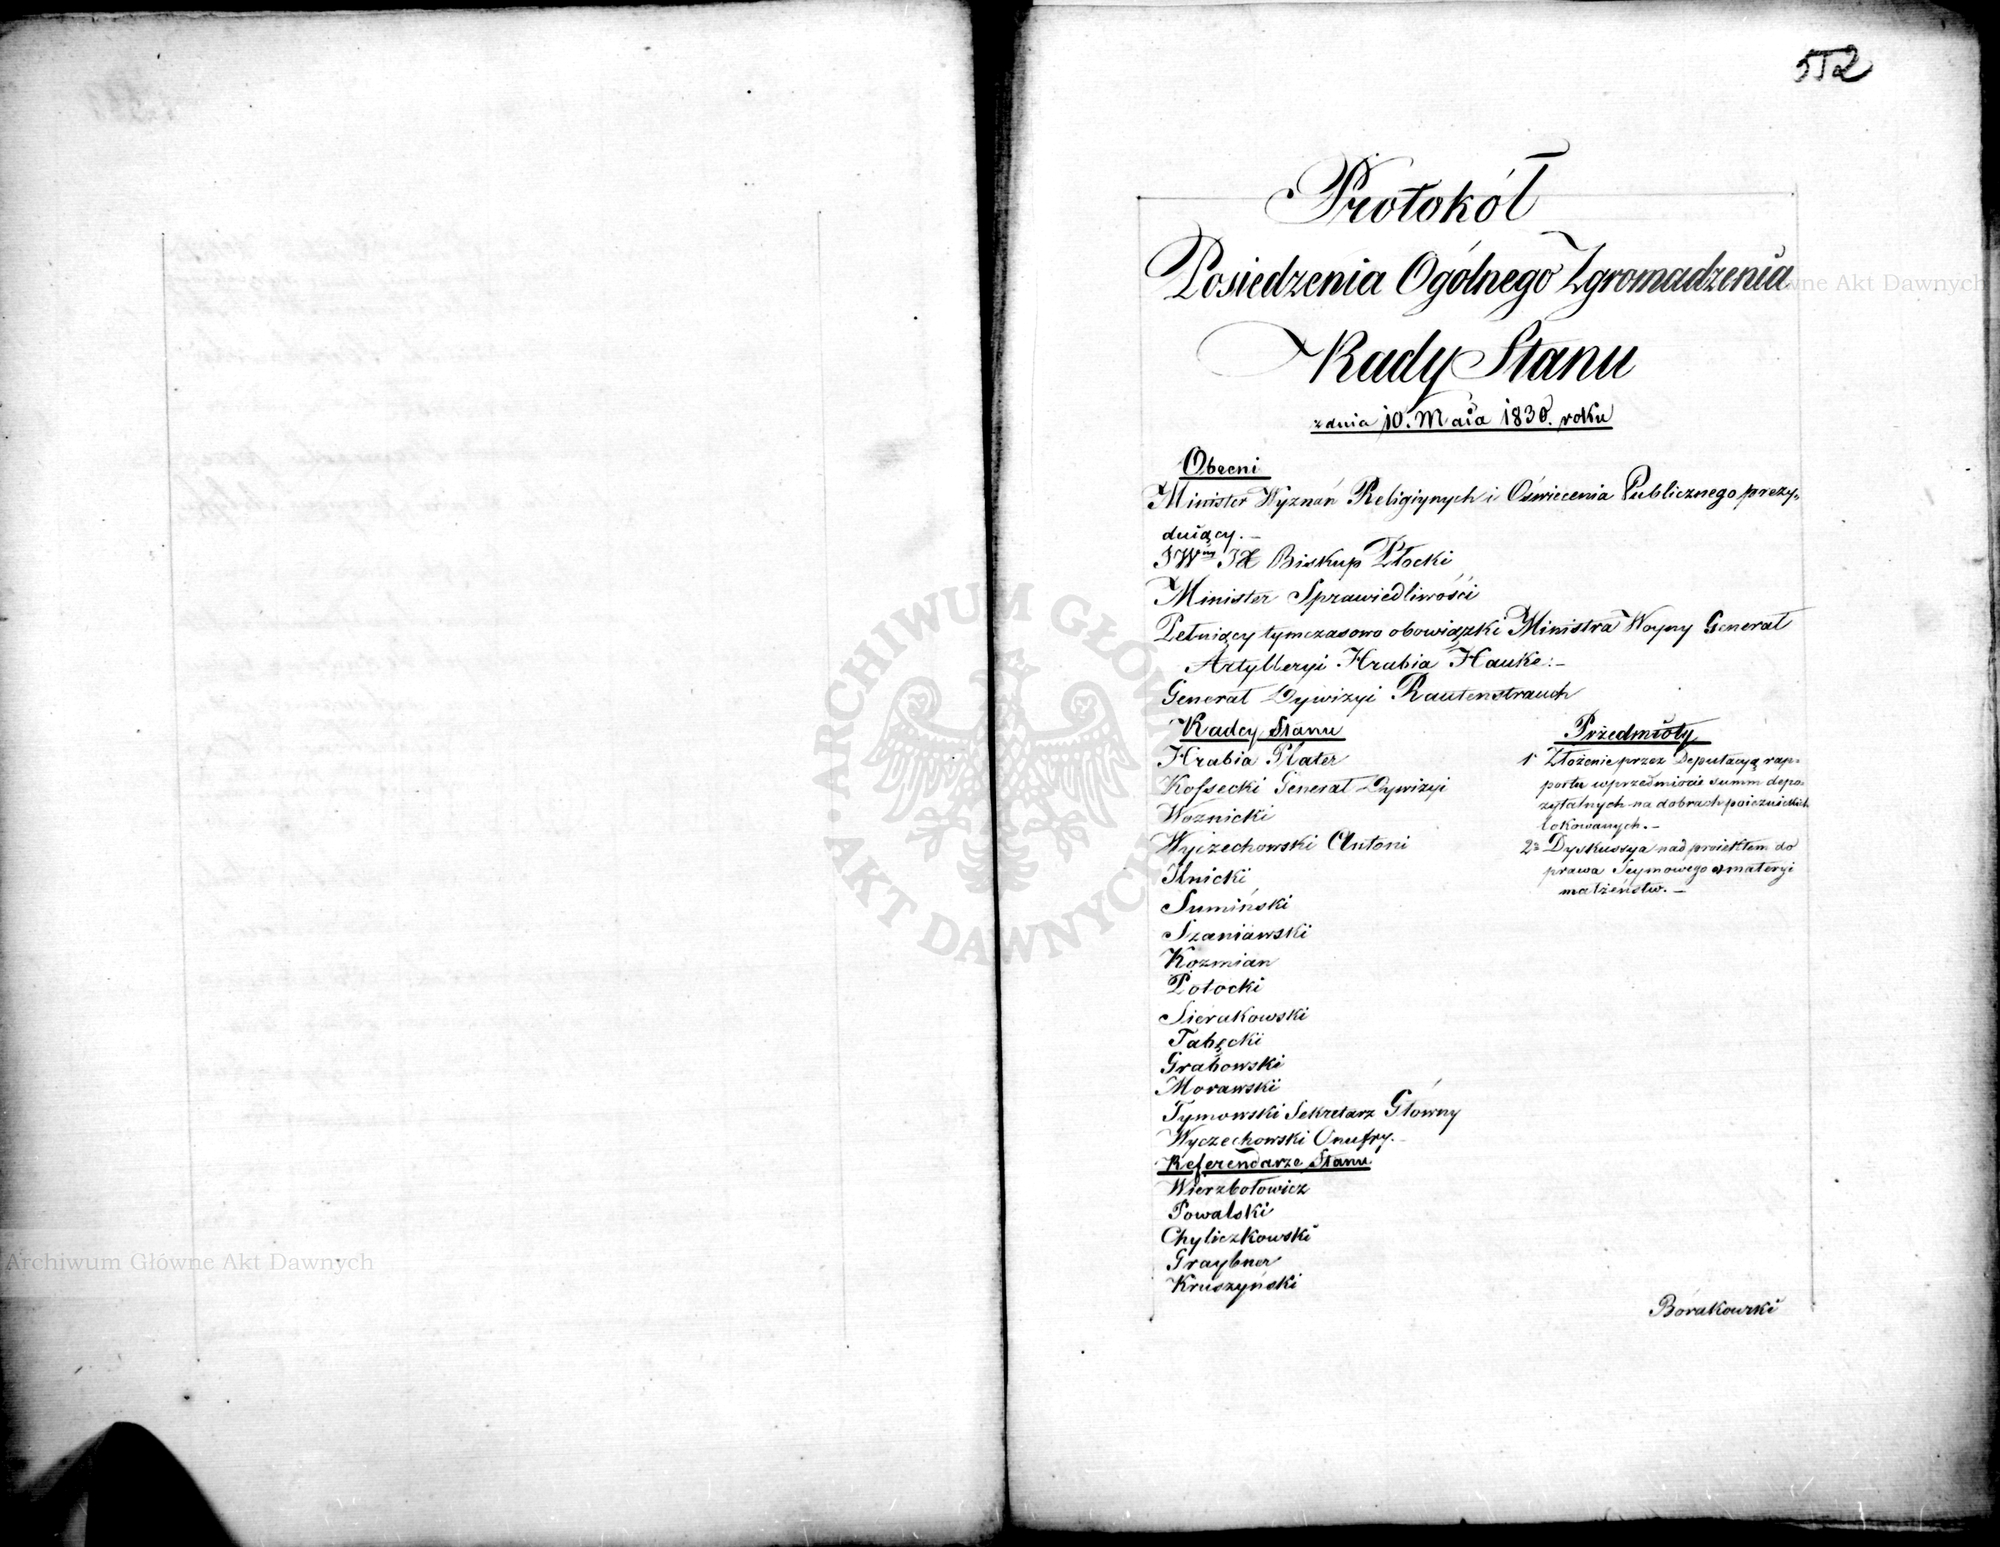 552
Protokół
Posiedzenia Ogólnego Zgromadzenia
Rady Stanu
z dnia 10. Maia 1830. roku
Obecni
Minister Wyznań Religiynych i Oświecenia Publicznego prezy-
duiący. –
JWny JX Biskup Płocki
Minister Sprawiedliwości
Pełniący tymczasowo obowiązki Ministra Woyny Generał
Artylleryi Hrabia Hauke: –
Generał Dywizyi Rautenstrauch
Radcy Stanu
Hrabia Plater
Kossecki Generał Dywizyi
Woznicki
Wyczechowski Antoni
Ilnicki
Sumiński
Szaniawski
Kozmian
Potocki
Sierakowski
Tabęcki
Grabowski
Morawski
Tymowski Sekretarz Główny
Wyczechowski Onufry. –
Referendarze Stanu
Wierzbołowicz
Powalski
Chyliczkowski
Graybner
Kruszyński
Przedmioty
1° Złożenie przez Deputacyą rap-
portu w przedmiocie summ depo-
zytalnych na dobrach poiezuickich
lokowanych. –
2° Dyskussya nad proiektem do
prawa Seymowego o materyi
małżeństw. –
Borakowski
ARCHIWUM GŁÓWNE AKT DAWNYCH
Archiwum Główne Akt Dawnych
Główne Akt Dawnych